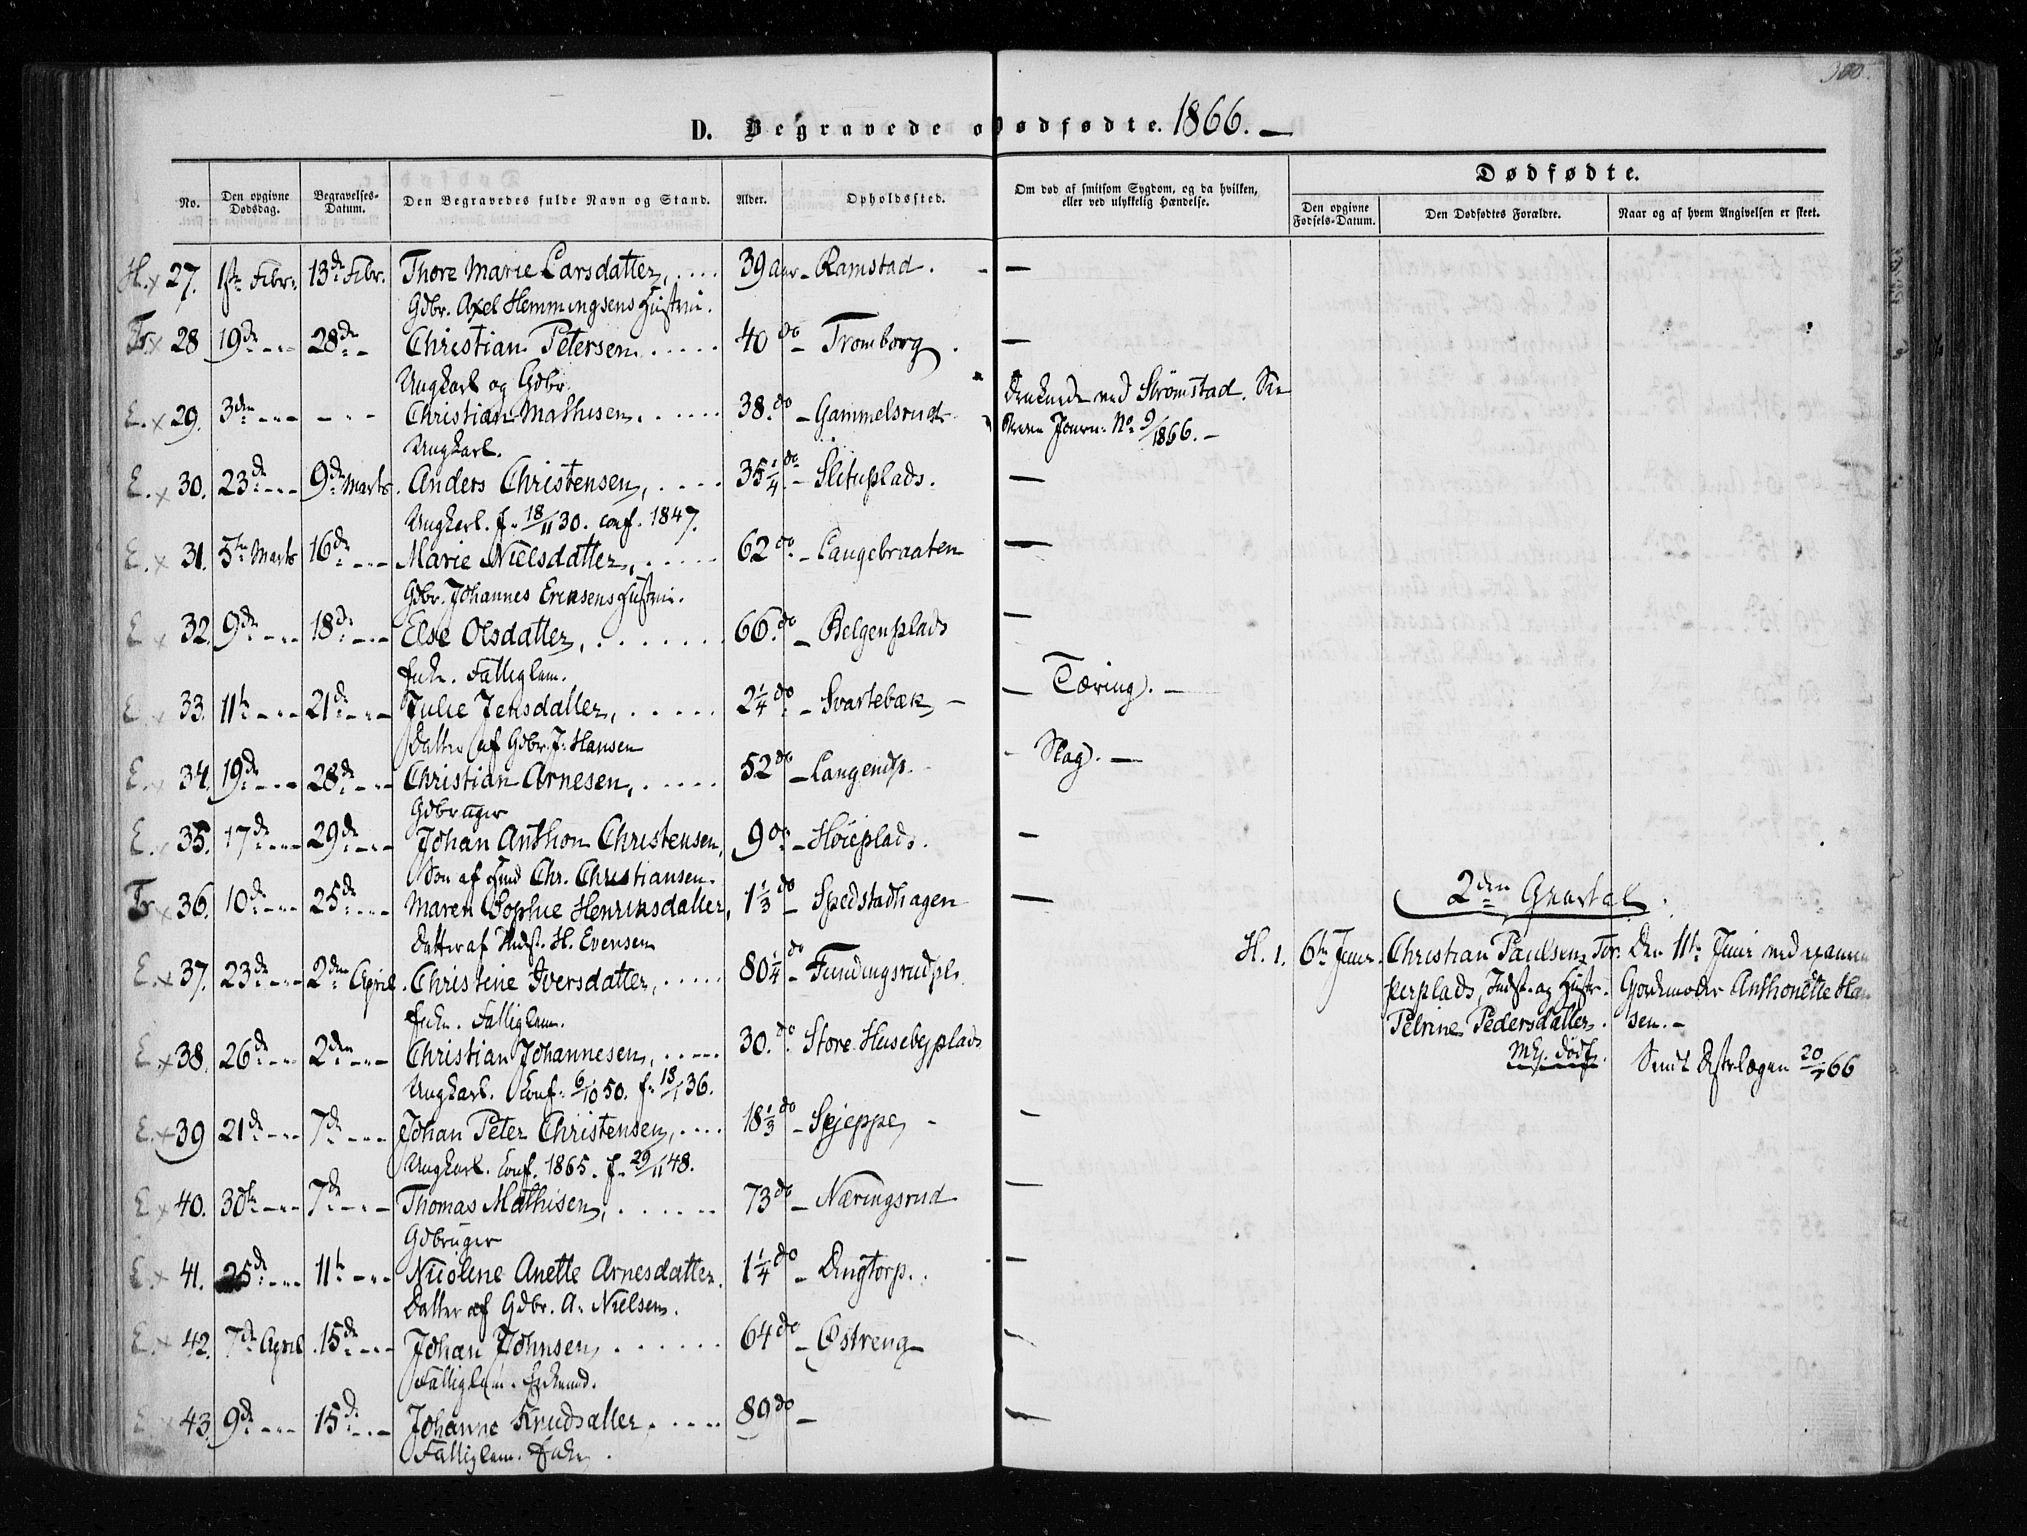 300.
D. Begravede o Dødfødte. 1866. —
No. | Den opgivne Dødsdag. | Begravelses-Datum. | Den Begravedes fulde Navn og Stand. | Alder. | Opholdssted. | Om død af smitsom Sygdom, og da hvilken, eller ved ulykkelig Hændelse. | Dødfødte.
Den opgivne Fødsels-Datum. | Den Dødfødtes Forældre. | Naar og af hvem Angivelsen er skeet.
H. x 27. 1ste Febr. 13de Febr. Thore Marie Larsdatter, .... 39 Aar – Ramstad. —
Gdbr. Axel Hemmingsens Hustru.
Tr x 28 19de 28de Christian Petersen ..... 40 do – Tromborg. —
Ungkarl og Gdbr.
E. x 29. 3den – – – Christian Mathisen ..... 38. do – Gammelsrud – ved Strømstad. See
Ungkarl. Journ: No 9/1866. –
E. x 30. 23de 9de Marts. Anders Christensen, .... 35 1/4 do – Slituplads. —
Ungkarl. f. 18/11 30. Conf. 1847.
E. x 31. 5te Marts 16de Marie Nielsdatter, .... 62 do – Langebraaten —
Gdbr. Johannes Ericksens Hustru.
E x 32. 9de 18de Else Olsdatter, ....... 66. do – Helgenplads —
Enke. Fattiglem.
E x 33. 11te 21de Julie Jensdatter, ..... 2 1/4 do – Svartebæk, — Tæring. —
Datter af Gdbr. J. Hansen
E. x 34. 19de 28de Christian Arnesen, ..... 52 do – Langendp. Slag. —
Gdbruger
E. x 35. 17de 29de Johan Anthon Christensen, 9 do – Høieplads. —
Søn af Chr. Christiansen.
Tr x 36. 10de 25de Maren Sophie Henriksdatter, 1 1/3 do – Spedstadhagen —
Datter af Indst. H. Evensen
E x 37. 23de 2den April. Christine Iversdatter, .... 80 1/4 do – Fundingsrudpl.
Enke. Fattiglem.
E x 38. 26de 2den Christian Johannesen, .... 30. do Store Husebyplads
Ungkarl. Conf. 6/10 50. f. 18/1 36.
E. x 39 21de 7de Johan Peter Christensen, .... 18 1/3 do – Spjeppe, —
Ungkarl. Conf. 1865. f. 29/11 48.
E x 40. 30te 7de Thomas Mathisen, ...... 73 do – Næringsrud —
Gdbruger
E. x 41. 25de 11te Nicoline Anette Arnesdatter. 1 1/4 do – Dingtorp. —
Datter af Gdbr. A. Nielsen.
E. x 42. 7de April 15de Johan Johnsen, ...... 64 do – Østreng —
Fattiglem. Enkemand.
E x 43. 9de 15de Johanne Knudsdatter ..... 89 do – —
Fattiglem. Enke.
2den Qvartal.
H. 1. 6te Juni. Christian Paulsen, Tor- Den 11te Juni ved examin
perplads, Indst. og Hustr. Gjordemoder Anthonette Han
Petrine Pedersdatter. sen. –
Mkj. dødf. Sendt Distrlægen 20/7 66